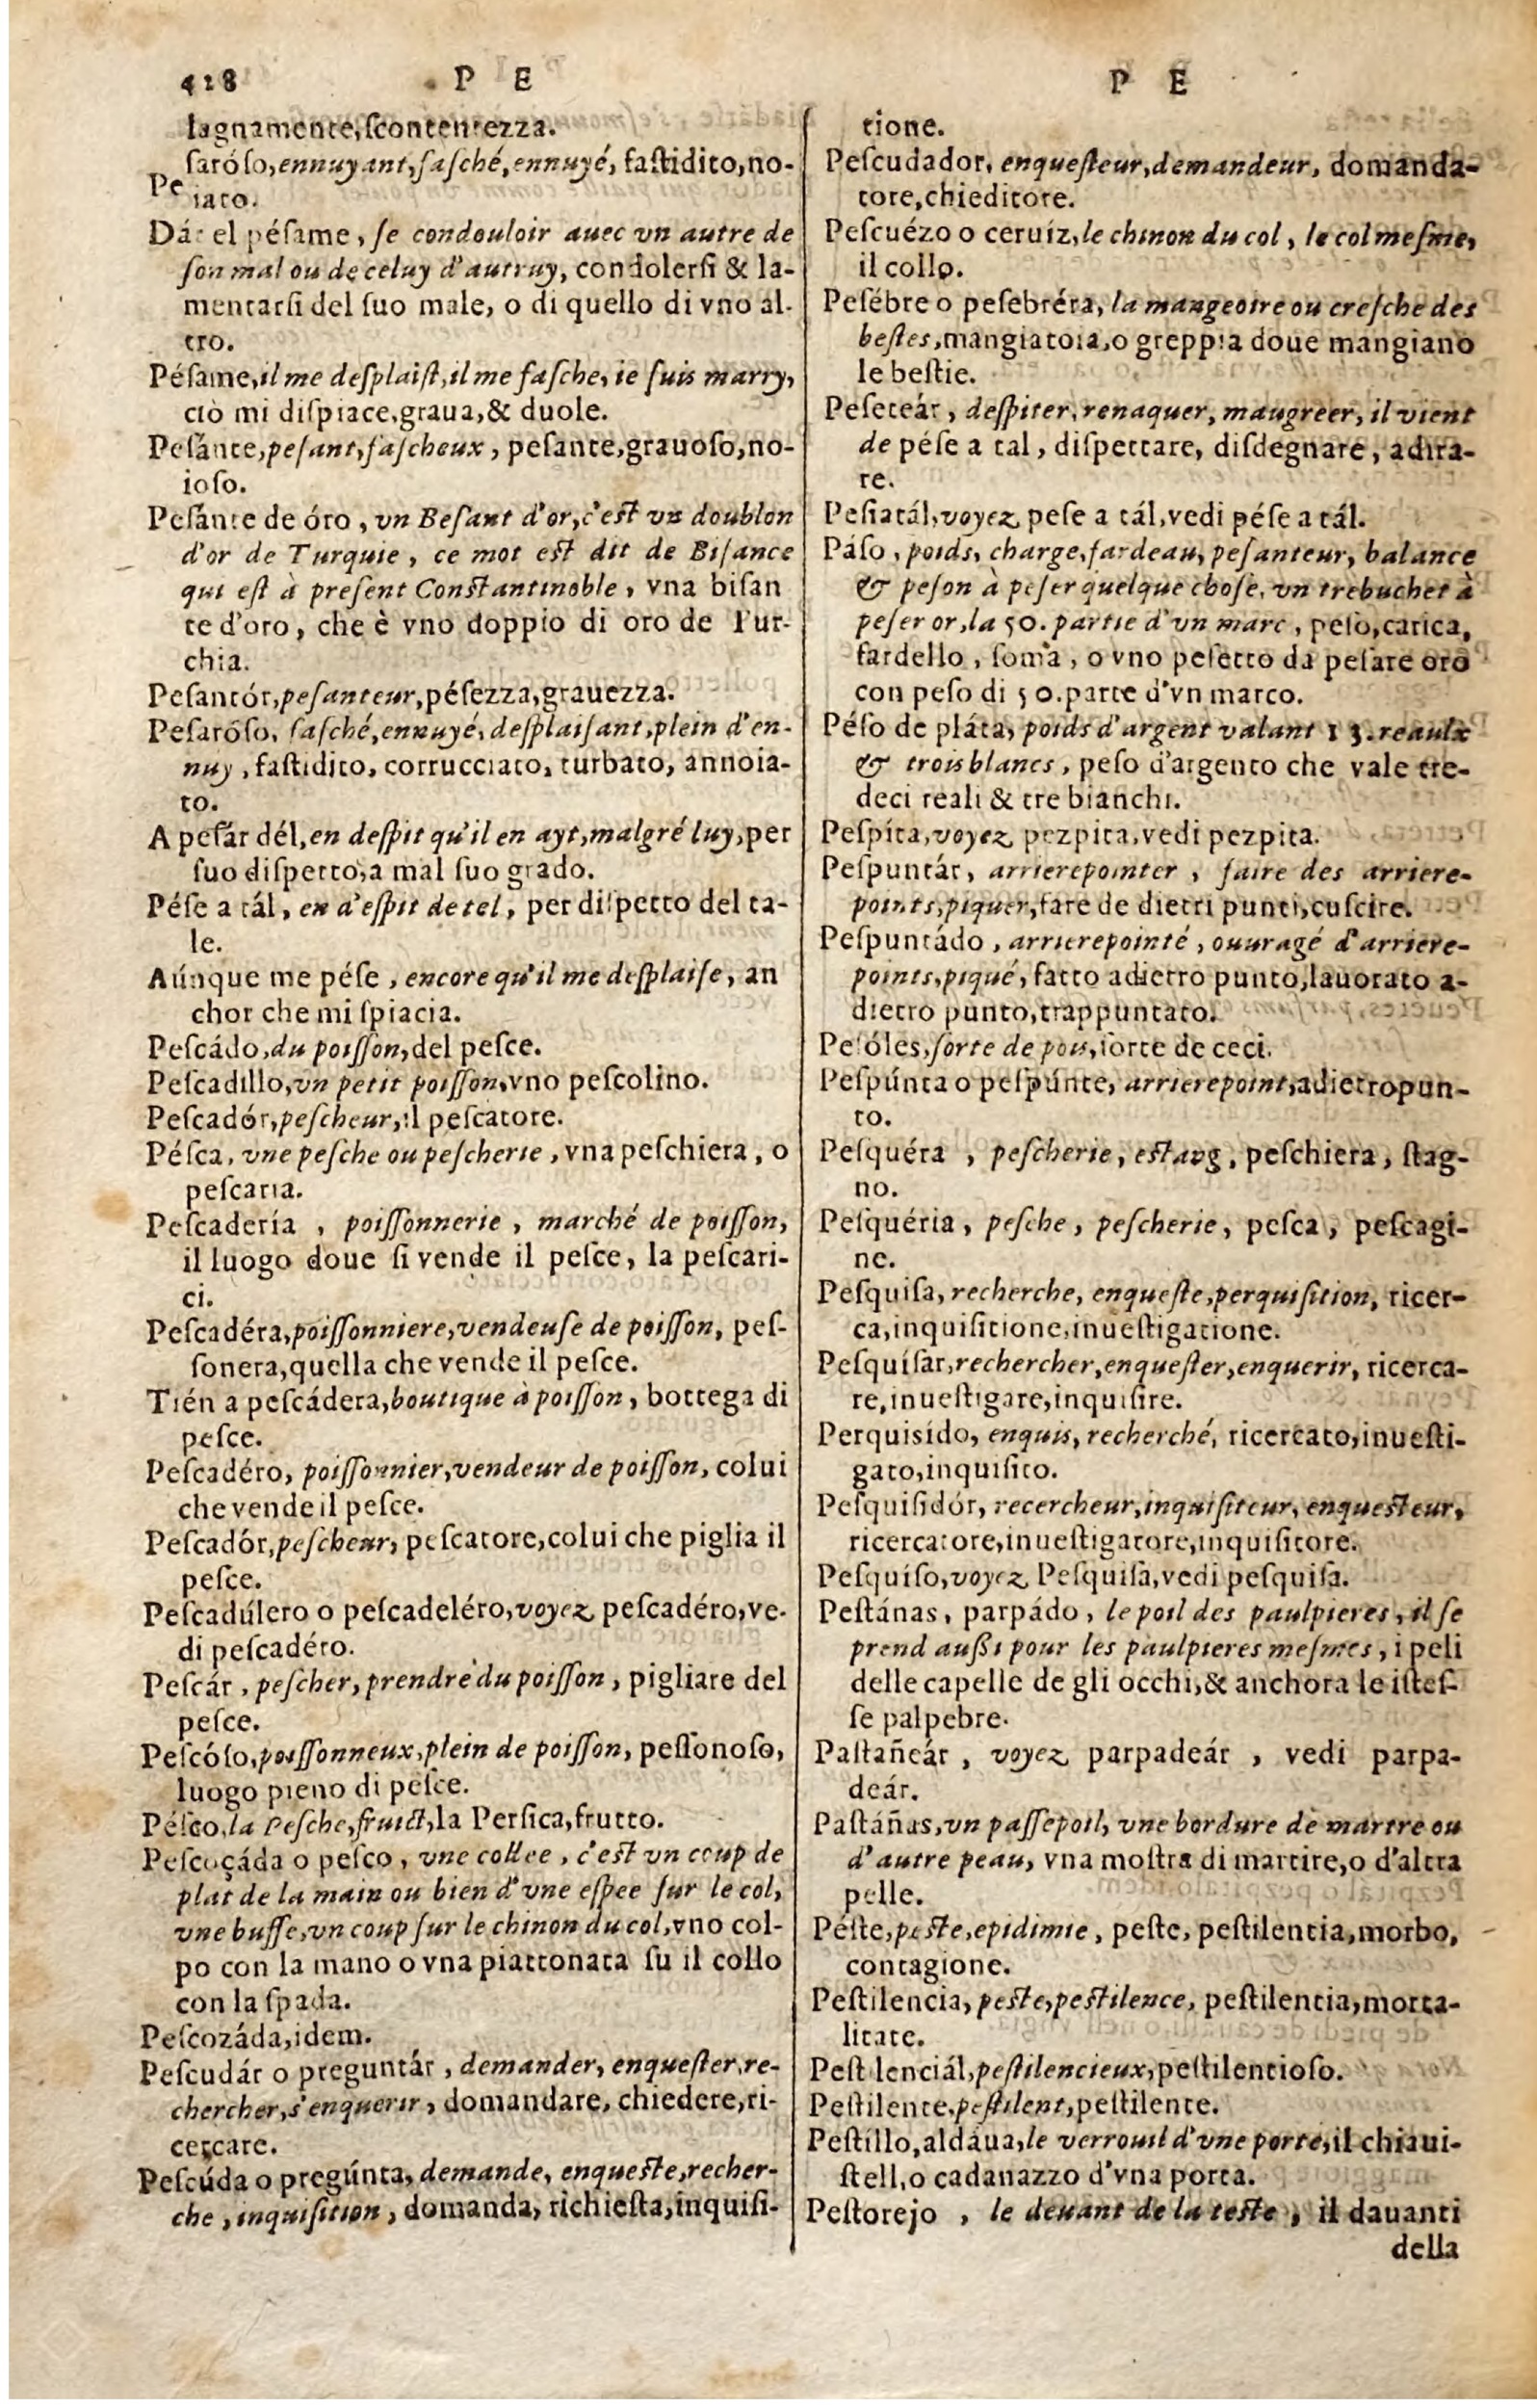 428 P E
lagnamente,scontentezza.
Pesaróso,ennuyant,fasché,ennuyé, fastidito,no-
iato.
Dár el pésame, se condouloir auec vn autre de
son mal ou de celuy d'autruy, condolersi & la-
mentarsi del suo male, o di quello di vno al-
tro.
Pésame,il me desplaist,il me fasche, ie suis marry,
ciò mi dispiace,graua,& duole.
Pesánte,pesant,fascheux, pesante,grauoso,no-
ioso.
Pesánte de óro, vn Besant d'or,c'est vn doublon
d'or de Turquie, ce mot est dit de Bisance
qui est à present Constantinoble, vna bisan
te d'oro, che è vno doppio di oro de Tur-
chia.
Pesantór,pesanteur,pésezza,grauezza.
Pesaróso, fasché,ennuyé,desplaisant,plein d'en-
nuy, fastidito, corrucciato, turbato, annoia-
to.
A pesár dél,en despit qu'il en ayt,malgré luy,per
suo dispetto,a mal suo grado.
Pése a tál, en d'espit de tel, per dispetto del ta-
le.
Aúnque me pése, encore qu'il me desplaise, an
chor che mi spiacia.
Pescádo,du poisson,del pesce.
Pescadillo,vn petit poisson,vno pescolino.
Pescadór,pescheur,il pescatore.
Pésca, vne pesche ou pescherie, vna peschiera, o
pescaria.
Pescadería, poissonnerie, marché de poisson,
il luogo doue si vende il pesce, la pescari-
ci.
Pescadéra,poissonniere,vendeuse de poisson, pes-
sonera,quella che vende il pesce.
Tién a pescádera,boutique à poisson, bottega di
pesce.
Pescadéro, poissonnier,vendeur de poisson, colui
che vende il pesce.
Pescadór,pescheur, pescatore,colui che piglia il
pesce.
Pescadúlero o pescadeléro,voyez pescadéro,ve-
di pescadéro.
Pescár, pescher, prendre du poisson, pigliare del
pesce.
Pescóso,poissonneux,plein de poisson, pessonoso,
luogo pieno di pesce.
Pésco,la Pesche,fruict,la Persica,frutto.
Pescoçáda o pesco, vne collee, c'est vn coup de
plat de la main ou bien d'vne espee sur le col,
vne buffe,vn coup sur le chinon du col,vno col-
po con la mano o vna piattonata su il collo
con la spada.
Pescozáda,idem.
Pescudár o preguntár, demander, enquester,re-
chercher,s'enquerir, domandare, chiedere,ri-
cercare.
Pescúda o pregúnta, demande, enqueste,recher-
che, inquisition, domanda, richiesta,inquisi-
P E
tione.
Pescudador, enquesteur,demandeur, domanda-
tore,chieditore.
Pescuézo o ceruíz,le chinon du col, le col mesme,
il collo.
Pesébre o pesebréra, la mangeoire ou cresche des
bestes,mangiatoia,o greppia doue mangiano
le bestie.
Peseteár, despiter, renaquer, maugreer, il vient
de pése a tal, dispettare, disdegnare, adira-
re.
Pesiatál,voyez pese a tál,vedi pése a tál.
Páso, poids, charge,fardeau, pesanteur, balance
& peson à peser quelque chose, vn trebuchet à
peser or,la 50. partie d'vn marc, peso,carica,
fardello, soma, o vno pesetto da pesare oro
con peso di 50.parte d'vn marco.
Péso de pláta, poids d'argent valant 13.reaulx
& trois blancs, peso d'argento che vale tre-
deci reali & tre bianchi.
Pespíta,voyez pezpita,vedi pezpita.
Pespuntár, arrierepointer, faire des arriere-
points,piquer,fare de dietri punti,cuscire.
Pespuntádo, arrierepointé, ouuragé d'arriere-
points,piqué, fatto adietro punto,lauorato a-
dietro punto,trappuntato.
Pesóles,sorte de pois,sorte de ceci.
Pespúnta o pespúnte, arrierepoint,adietropun-
to.
Pesquéra, pescherie, estang, peschiera, stag-
no.
Pesquéria, pesche, pescherie, pesca, pescagi-
ne.
Pesquisa, recherche, enqueste,perquisition, ricer-
ca,inquisitione,inuestigatione.
Pesquísar,rechercher,enquester,enquerir, ricerca-
re,inuestigare,inquisire.
Perquisído, enquis, recherché, ricercato,inuesti-
gato,inquisito.
Pesquisidór, recercheur,inquisiteur, enquesteur,
ricercatore,inuestigatore,inquisitore.
Pesquíso,voyez Pesquisa,vedi pesquisa.
Pestánas, parpádo, le poil des paulpieres, il se
prend aussi pour les paulpieres mesmes, i peli
delle capelle de gli occhi,& anchora le istes-
se palpebre.
Pastañeár, voyez parpadeár, vedi parpa-
deár.
Pastáñas,vn passepoil, vne bordure de martre ou
d'autre peau, vna mostra di martire,o d'altra
pelle.
Péste,peste,epidimie, peste, pestilentia,morbo,
contagione.
Pestilencia, peste,pestilence, pestilentia,morta-
litate.
Pestilenciál,pestilencieux,pestilentioso.
Pestilente,pestilent,pestilente.
Pestillo,aldáua,le verrouil d'vne porte,il chiaui-
stell,o cadanazzo d'vna porta.
Pestorejo, le deuant de la teste, il dauanti
della